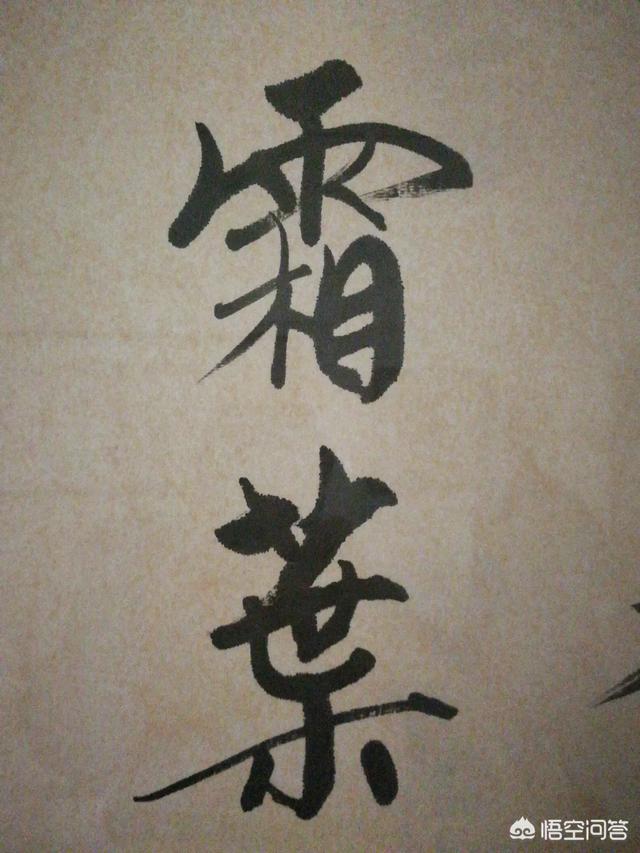 霜葉
悟空问答